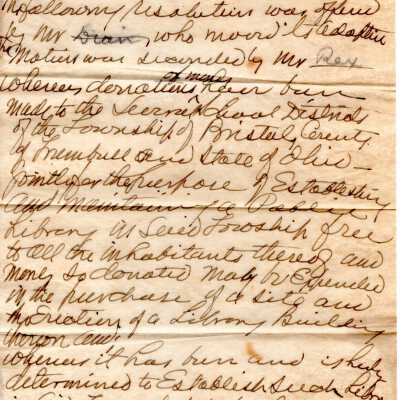 following resolution was offered
by Mr Dian, who moved its adoption
Motion was seconded by Mr Rex
of money
whereas, donations have been
made to the several School Districts
of the Township of Bristol, County
of Trumbull and State of Ohio—
jointly for the purpose of Establishing
and maintaining a Public
Library in said Township free
to all the inhabitants thereof and
money so donated may be Expended
in the purchase of a site and
the Erection of a Library Building
thereon and
whereas it has been and is hereby
determined to Establish such Library